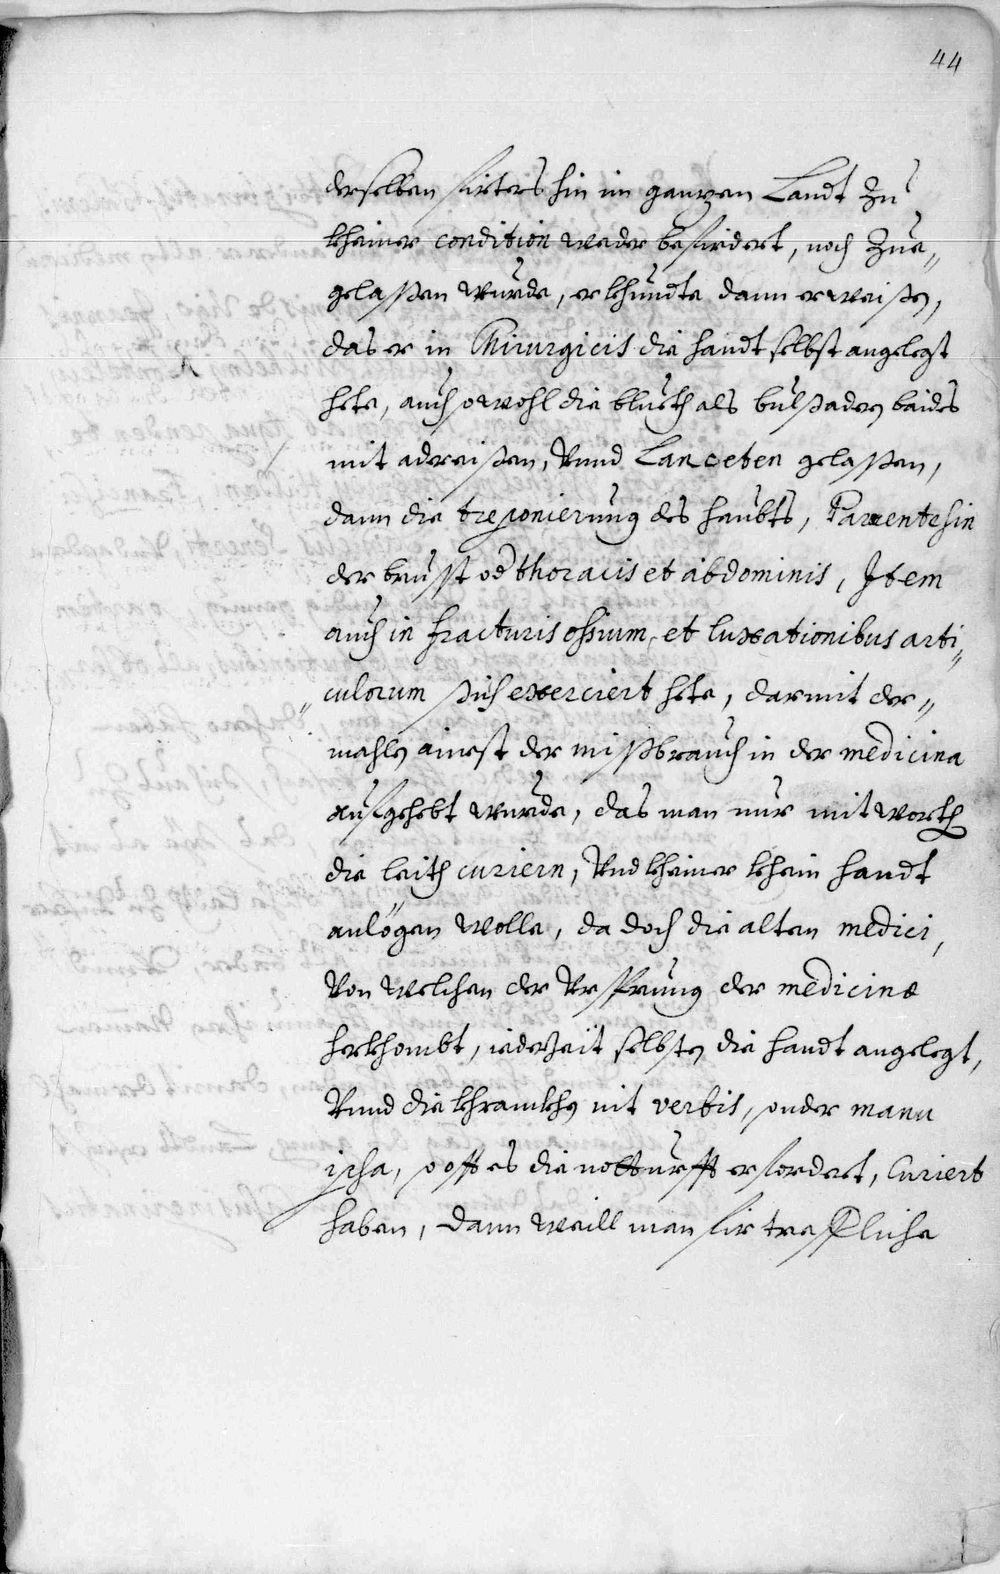 44
derselben firters hin im ganzen Landt zu
kheiner condition weder befirdert, noch zue„
gelassen wurde, er khundte dann erweisen,
das er in Chirurgicis die handt selbst angelegt
hete, auch sowohl die blueth als bulßadern baides
mit adereisen, Vnnd Lanceten gelassen,
dann die treponierung des haubts, Paracentesin
der brusst od thoracis et abdominis, Item
auch in fracturis ossium, et luxationibus arti„
culorum sich exerciert hete, darmit der„
mahln ainest der missbrauch in der medicina
aufgehebt wurde, das man nur mit worth
die leith curiern, Vnd kheiner khein handt
anlögen wolle, da doch die alten medici,
Von welchen der Vrsprung der medicinæ
herkhombt, iederzeit selbsten die handt angelegt,
Vnnd die khrankhen nit verbis, sonder manu
ipsa, so offt es die notturfft erfordert, Curiert
haben, Dann weill man firtreffliche